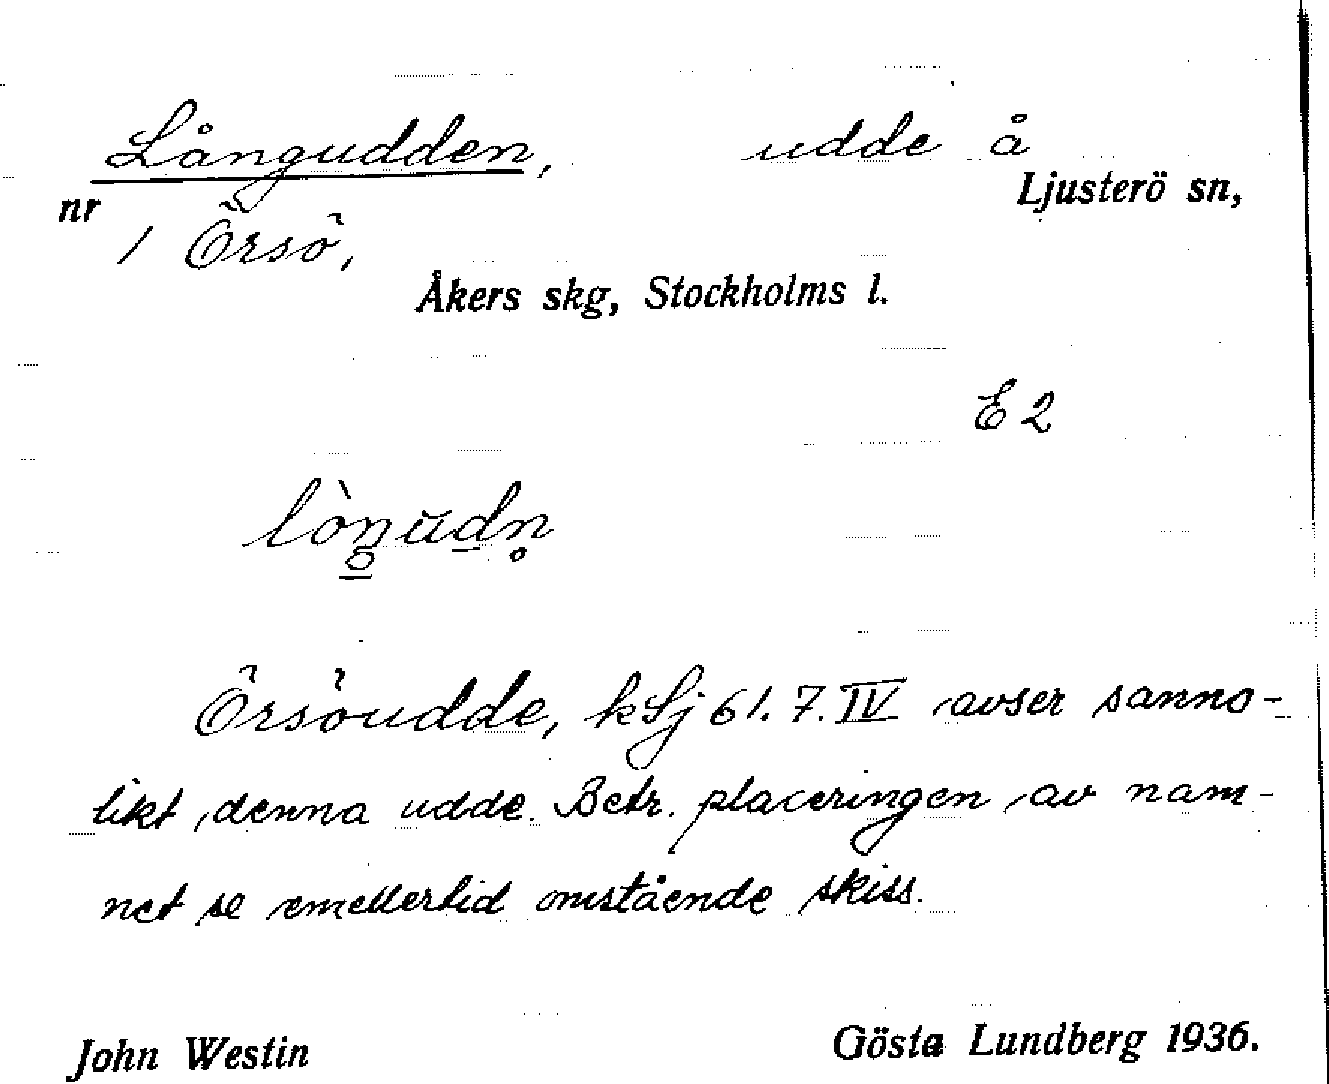 Långudden, udde å
nr Ljusterö sn,
1 Örsö,
Åkers skg, Stockholms l.
E 2
lòŋudn̥
Örsöudde, kSj 61.7.IV avser sanno-
likt denna udde. Betr. placeringen av nam-
net se emellertid omstående skiss.
John Westin Gösta Lundberg 1936.